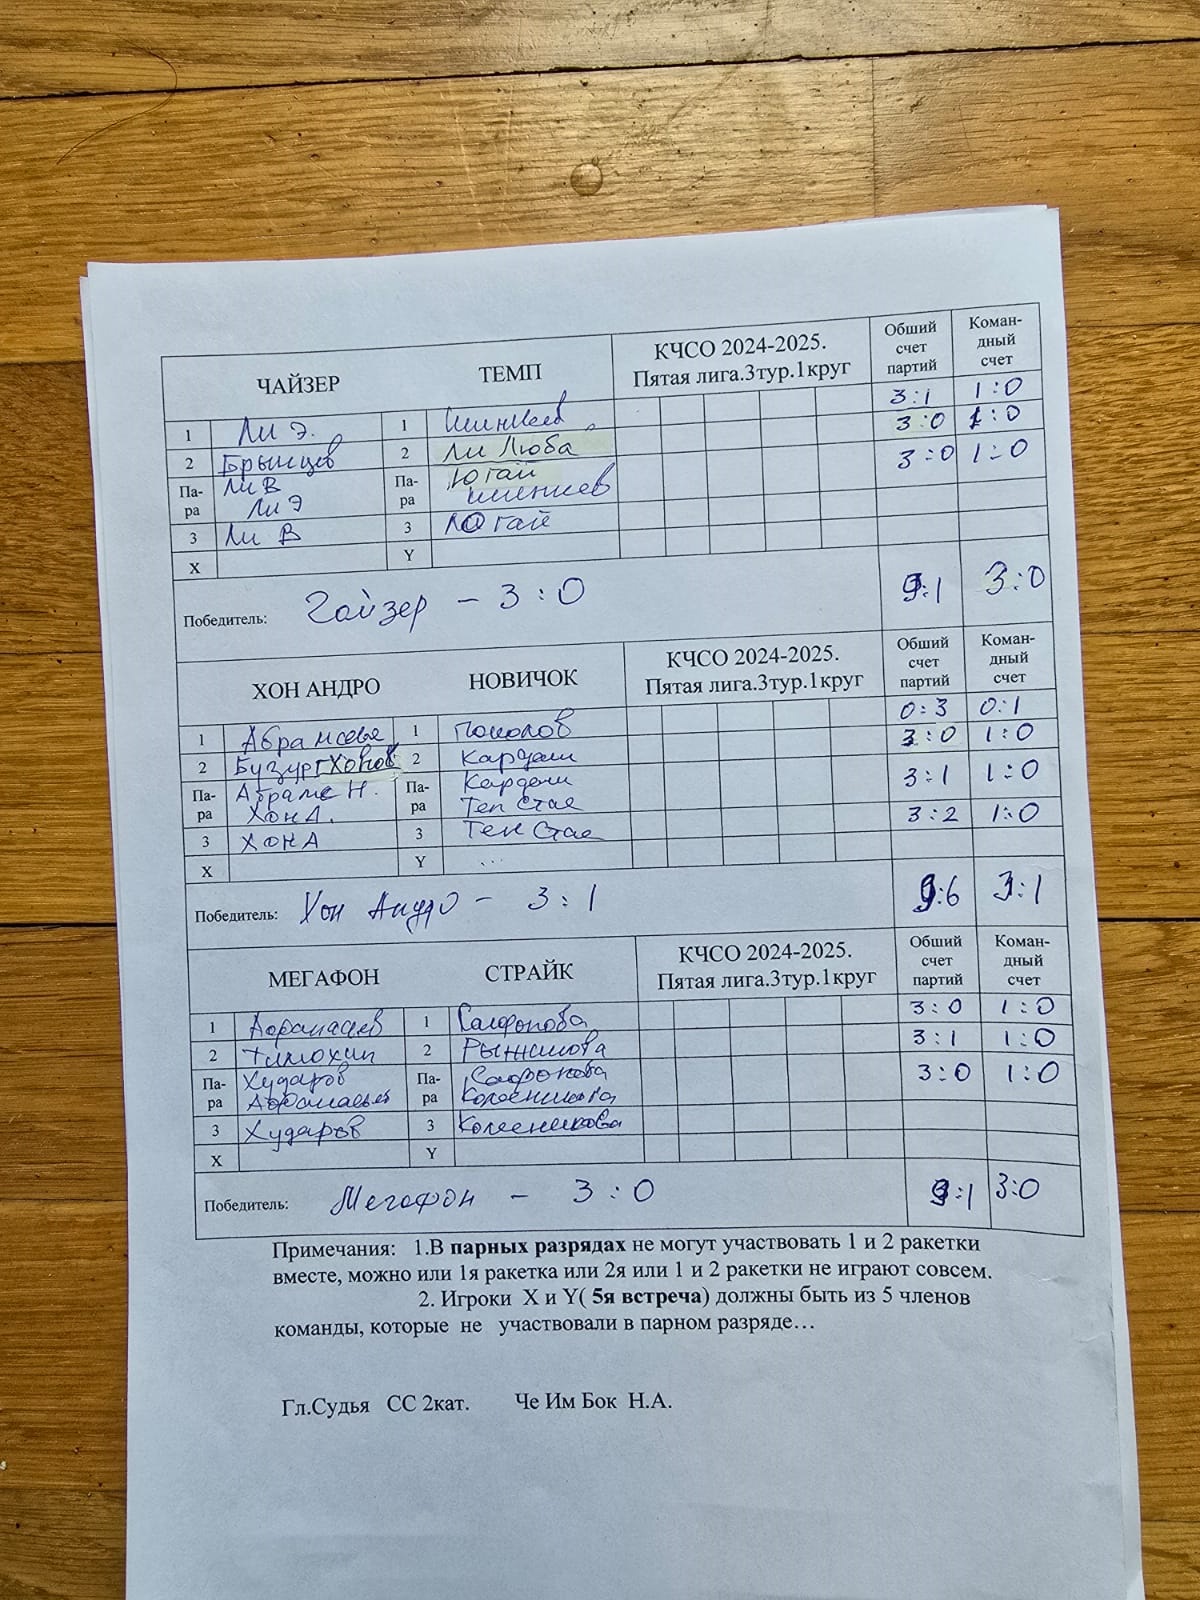 ЧАЙЗЕР ТЕМП КЧСО 2024-2025. Пятая лига.3тур.1круг Обший счет партий Коман-дный счет
1 Ли Э. 1 Шинкеев 3:1 1:0
2 Брынцев 2 Ли Люба 3:0 1:0
Па-ра Ли В Па-ра Югай 3:0 1:0
Ли Э
3 Ли В 3 Югай
X Y
Победитель: Гайзер - 3:0 9:1 3:0
ХОН АНДРО НОВИЧОК КЧСО 2024-2025. Пятая лига.3тур.1круг Обший счет партий Коман-дный счет
1 1 0:3 0:1
2 Бузургхонов 2 3:0 1:0
Па-ра Па-ра 3:1 1:0
Хон А. Тен Стас
3 Хон А 3 Тен Стас 3:2 1:0
X Y ...
Победитель: Хон Андро - 3:1 9:6 3:1
МЕГАФОН СТРАЙК КЧСО 2024-2025. Пятая лига.3тур.1круг Обший счет партий Коман-дный счет
1 Афанасьев 1 3:0 1:0
2 Тимохин 2 3:1 1:0
Па-ра Хударов Па-ра Сафонова 3:0 1:0
Афанасьев Колесникова
3 Хударов 3 Колесникова
X Y
Победитель: Мегафон - 3:0 9:1 3:0
Примечания: 1.В парных разрядах не могут участвовать 1 и 2 ракетки
вместе, можно или 1я ракетка или 2я или 1 и 2 ракетки не играют совсем.
2. Игроки X и Y( 5я встреча) должны быть из 5 членов
команды, которые не участвовали в парном разряде…
Гл.Судья СС 2кат. Че Им Бок Н.А.